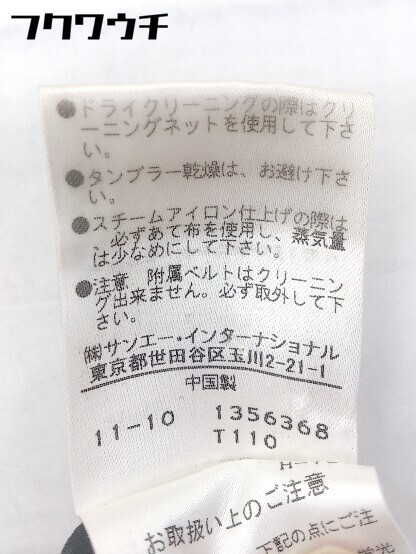 フクワウチ
●ドライクリーニングの際はクリ
ーニングネットを使用して下さ
い。
●タンブラー乾燥は、お避け下さ
い。
●スチームアイロン仕上げの際は
必ずあて布を使用し、蒸気量
は少なめにして下さい。
●注意 附属ベルトはクリーニン
グ出来ません。必ず取外して下
さい。
㈱サンエー・インターナショナル
東京都世田谷区玉川2-21-1
中国製
11-10 1356368
T110
お取扱い上のご注意
下記の点にご注